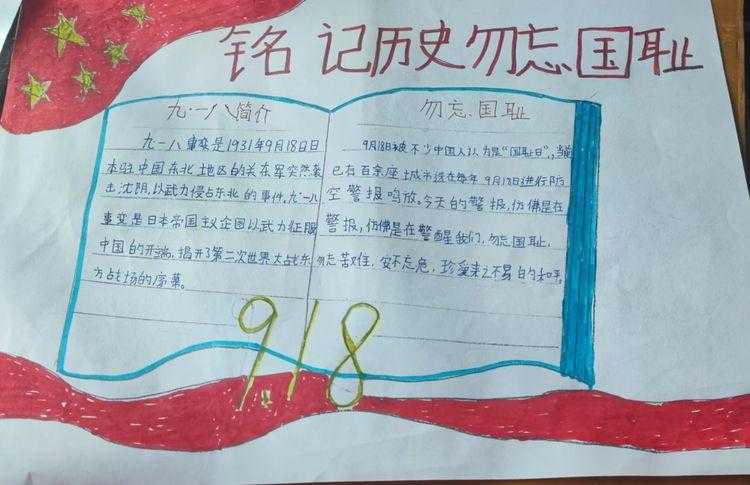 铭记历史勿忘国耻
九·一八简介
九一八事变是1931年9月18日日
本驻中国东北地区的关东军突然袭
击沈阴,以武力侵占东北的事件,九·一八
事变是日本帝国主义企图以武力征服
中国的开端,揭开了第二次世界大战东
方战场的序幕。
勿忘国耻
9月18日被不少中国人认为是“国耻日”,当前
已有百余座城市选在每年9月18日进行防
空警报鸣放。今天的警报,仿佛是在
警报,仿佛是在警醒我们,勿忘国耻,
勿忘苦难,安不忘危,珍爱来之不易的和平。
918